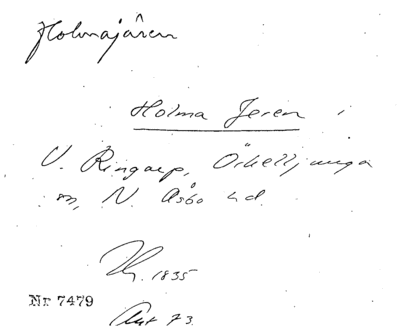 Holmajären
Holma Jeren i
V. Ringarp, Örkelljunga
sn, N. Åsbo hd.
1835
Nr 7479
73.